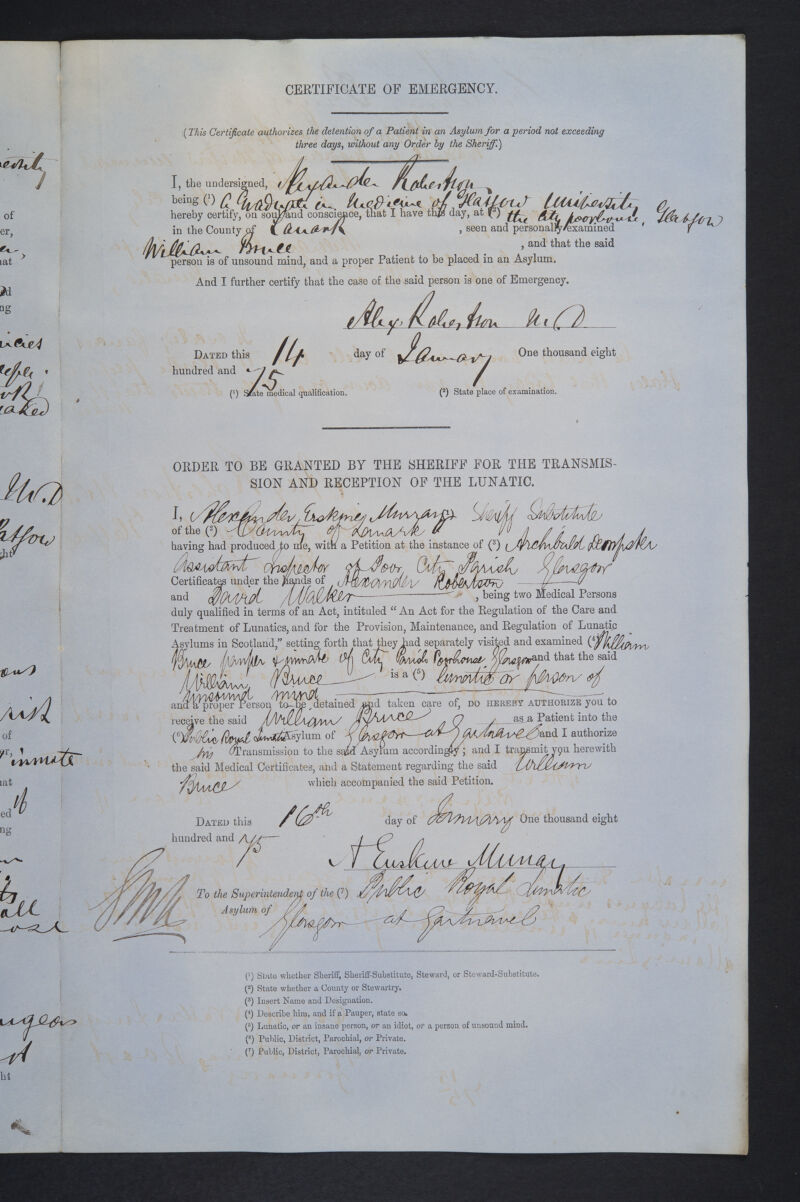 CERTIFICATE OF EMERGENCY.
(This Certificate authorizes the detention of a Patient in an Asylum for a period not exceeding
three days, without any Order by the Sheriff.)
I, the undersigned, Alexander Robertson
being (¹) a Graduate in Medicine of Glasgow University
hereby certify, on soul and conscience, that I have this day, at (²) the City poorhouse, Glasgow
in the County of Lanark , seen and personally examined
William Bruce , and that the said
person is of unsound mind, and a proper Patient to be placed in an Asylum.
And I further certify that the case of the said person is one of Emergency.
Alex. Robertson M.D
DATED this 14 day of January One thousand eight
hundred and 75
(¹) State medical qualification. (²) State place of examination.
ORDER TO BE GRANTED BY THE SHERIFF FOR THE TRANSMIS-
SION AND RECEPTION OF THE LUNATIC.
I, Alexander Erskine Murray Sheriff Substitute
of the (²) County of Lanark
having had produced to me, with a Petition at the instance of (³) Archibald Dempster
Assistant Inspector of Poor, City Parish Glasgow
Certificates under the hands of Alexander Robertson
and David Walker , being two Medical Persons
duly qualified in terms of an Act, intituled “An Act for the Regulation of the Care and
Treatment of Lunatics, and for the Provision, Maintenance, and Regulation of Lunatic
Asylums in Scotland,” setting forth that they had separately visited and examined (⁴) William
Bruce pauper & inmate of City Parish Poorhouse Glasgow and that the said
William Bruce is a (⁵) lunatic or person of
unsound mind
and a proper Person to be detained and taken care of, DO HEREBY AUTHORIZE you to
receive the said William Bruce as a Patient into the
(⁶) Public Royal Lunatic Asylum of Glasgow at Gartnavel and I authorize
his Transmission to the said Asylum accordingly; and I transmit you herewith
the said Medical Certificates, and a Statement regarding the said William
Bruce which accompanied the said Petition.
DATED this 16th day of January One thousand eight
hundred and 75
A Erskine Murray
To the Superintendent of the (⁷) Public Royal Lunatic
Asylum of Glasgow at Gartnavel
(¹) State whether Sheriff, Sheriff-Substitute, Steward, or Steward-Substitute.
(²) State whether a County or Stewartry.
(³) Insert Name and Designation.
(⁴) Describe him, and if a Pauper, state so.
(⁵) Lunatic, or an insane person, or an idiot, or a person of unsound mind.
(⁶) Public, District, Parochial, or Private.
(⁷) Public, District, Parochial, or Private.